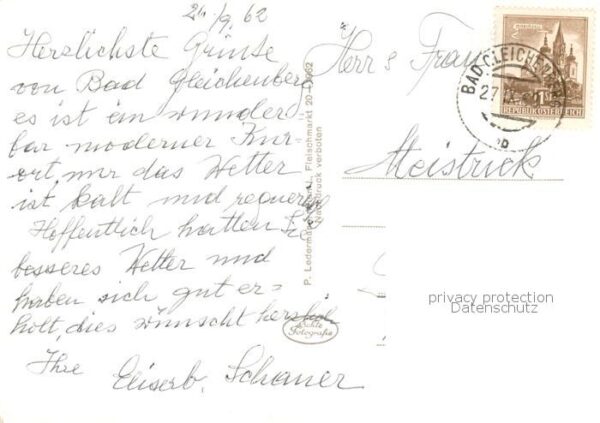 24./9. 62
Herzlichste Grüße
von Bad Gleichenberg
es ist ein wunder
bar moderner Kur-
ort, nur das Wetter
ist kalt und regnerisch
Hoffentlich hatten Sie
besseres Wetter und
haben sich gut er-
holt, dies wünscht herzlich
Ihre Schauer
P. Ledermann, Wien I., Fleischmarkt 20-1962
Nachdruck verboten
Echte
Fotografie
Herr & Frau
Meistrick
BAD GLEICHENBERG
27
b
REPUBLIK ÖSTERREICH
privacy protection
Datenschutz